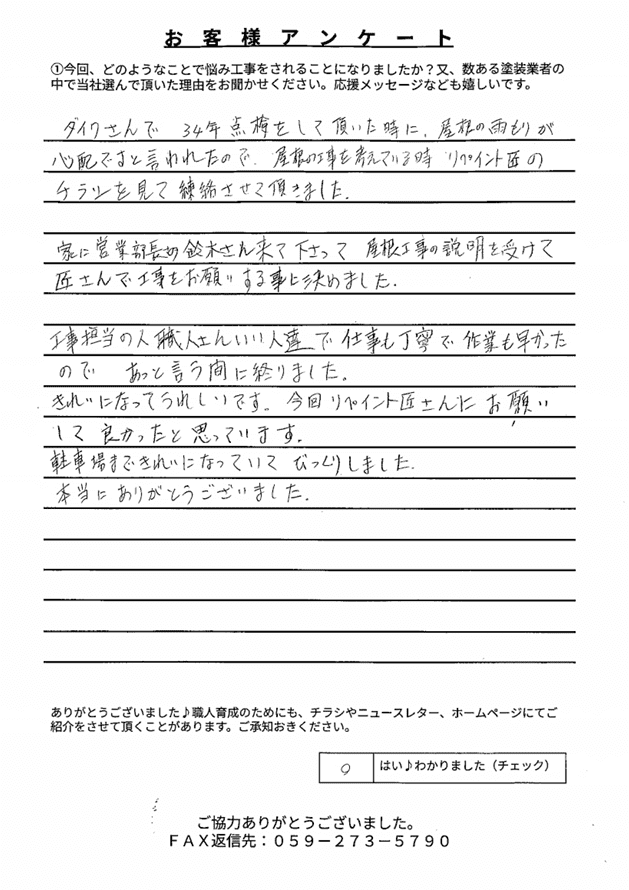 お客様アンケート
①今回、どのようなことで悩み工事をされることになりましたか？又、数ある塗装業者の
中で当社選んで頂いた理由をお聞かせください。応援メッセージなども嬉しいです。
ダイワさんで 34年点検をして頂いた時に、屋根の雨もりが
心配ですと言われたので、屋根の工事を考えている時 リペイント匠の
チラシを見て練絡させて頂きました。
家に営業部長の鈴木さん来て下さって 屋根工事の説明を受けて
匠さんで工事をお願いする事に決めました。
工事担当の人、職人さんいい人達で仕事も丁寧で作業も早かった
ので あっと言う間に終りました。
きれいになってうれしいです。今回リペイント匠さんにお願い
して良かったと思っています。
駐車場まできれいになっていてびっくりしました。
本当にありがとうございました。
ありがとうございました♪職人育成のためにも、チラシやニュースレター、ホームページにてご
紹介をさせて頂くことがあります。ご承知おきください。
○ はい♪わかりました（チェック）
ご協力ありがとうございました。
ＦＡＸ返信先：０５９－２７３－５７９０